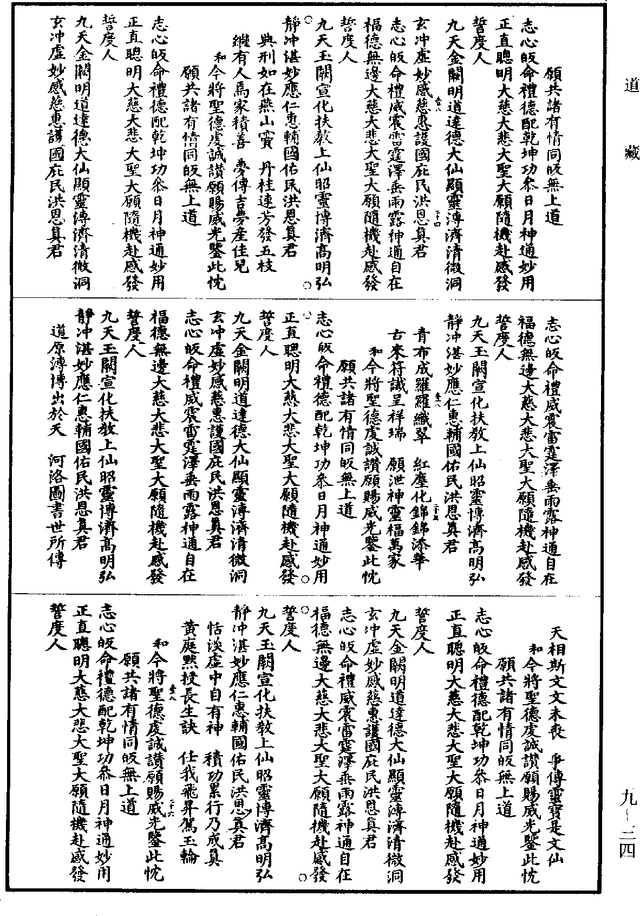 道藏
願共諸有情同皈無上道
志心皈命禮德配乾坤功叅日月神通妙用
正直聰明大慈大悲大聖大願隨機赴感發
誓度人
九天金闕明道達德大仙顯靈溥濟清微洞
玄冲虛妙感慈惠護國庇民洪恩真君
志心皈命禮威震雷霆澤垂雨露神通自在
福德無邊大慈大悲大聖大願隨機赴感發
誓度人
九天玉闕宣化扶教上仙昭靈博濟高明弘
静冲湛妙應仁惠輔國佑民洪恩真君
典刑如在燕山竇　丹桂連芳發五枝
繼有人焉家積善　夢傳吉夢産佳兒
和今將聖德虔誠讃願賜威光鑒此忱
願共諸有情同皈無上道
志心皈命禮德配乾坤功叅日月神通妙用
正直聰明大慈大悲大聖大願隨機赴感發
誓度人
九天金闕明道達德大仙顯靈溥濟清微洞
玄冲虛妙感慈惠護國庇民洪恩真君
志心皈命禮威震雷霆澤垂雨露神通自在
福德無邊大慈大悲大聖大願隨機赴感發
誓度人
九天玉闕宣化扶教上仙昭靈博濟高明弘
静冲湛妙應仁惠輔國佑民洪恩真君
青布成羅羅織翠　紅塵化錦錦添華
古來符讖呈祥瑞　願泄神靈福萬家
和今將聖德虔誠讃願賜威光鑒此忱
願共諸有情同皈無上道
志心皈命禮德配乾坤功叅日月神通妙用
正直聰明大慈大悲大聖大願隨機赴感發
誓度人
九天金闕明道達德大仙顯靈溥濟清微洞
玄冲虛妙感慈惠護國庇民洪恩真君
志心皈命禮威震雷霆澤垂雨露神通自在
福德無邊大慈大悲大聖大願隨機赴感發
誓度人
九天玉闕宣化扶教上仙昭靈博濟高明弘
静冲湛妙應仁惠輔國佑民洪恩真君
道原溥博出於天　河洛圖書世所傳
天相斯文文未喪　爭傳靈寶是文仙
和今將聖德虔誠讃願賜威光鑒此忱
願共諸有情同皈無上道
志心皈命禮德配乾坤功叅日月神通妙用
正直聰明大慈大悲大聖大願隨機赴感發
誓度人
九天金闕明道達德大仙顯靈溥濟清微洞
玄冲虛妙感慈惠護國庇民洪恩真君
志心皈命禮威震雷霆澤垂雨露神通自在
福德無邊大慈大悲大聖大願隨機赴感發
誓度人
九天玉闕宣化扶教上仙昭靈博濟高明弘
静冲湛妙應仁惠輔國佑民洪恩真君
恬淡虛中自有神　積功累行乃成真
黄庭黙授長生訣　任我飛昇駕玉輪
和今將聖德虔誠讃願賜威光鑒此忱
願共諸有情同皈無上道
志心皈命禮德配乾坤功叅日月神通妙用
正直聰明大慈大悲大聖大願隨機赴感發
誓度人
九～三四